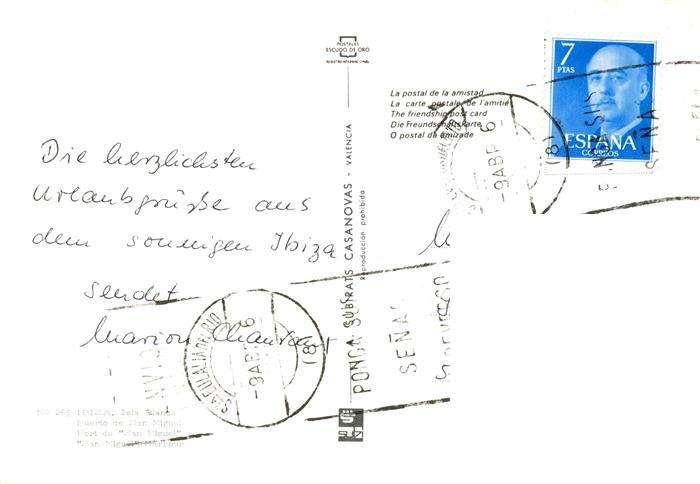 POSTALES
ESCUDO DE ORO
REGISTRO INTERNACIONAL
La postal de la amistad
La carte postale de l'amitié
The friendship post card
Die Freundschaftskarte
O postal da amizade
7
PTAS
ESPAÑA
CORREOS
-9 ABR 6-
(8)
SEÑA
Die herzlichsten
Urlaubsgrüße aus
dem sonnigen Ibiza
sendet
Marion
SUBIRATS CASANOVAS - VALENCIA
Reproducción prohibida
STA EULALIA DEL RIO
-9 ABR 6
(8)
PONGA
SEÑAS
Nº 269 IBIZA, Isla Blanca
Puerto de San Miguel
Port de "San Miguel"
"San Miguel" Harbour